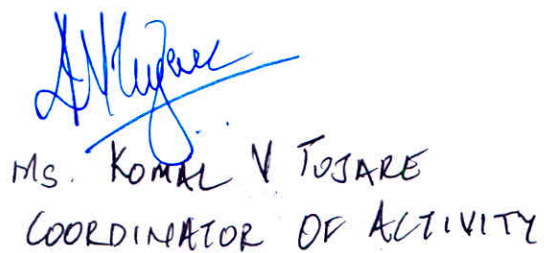 Ms. KOMAL V TUJARE
COORDINATOR OF ACTIVITY